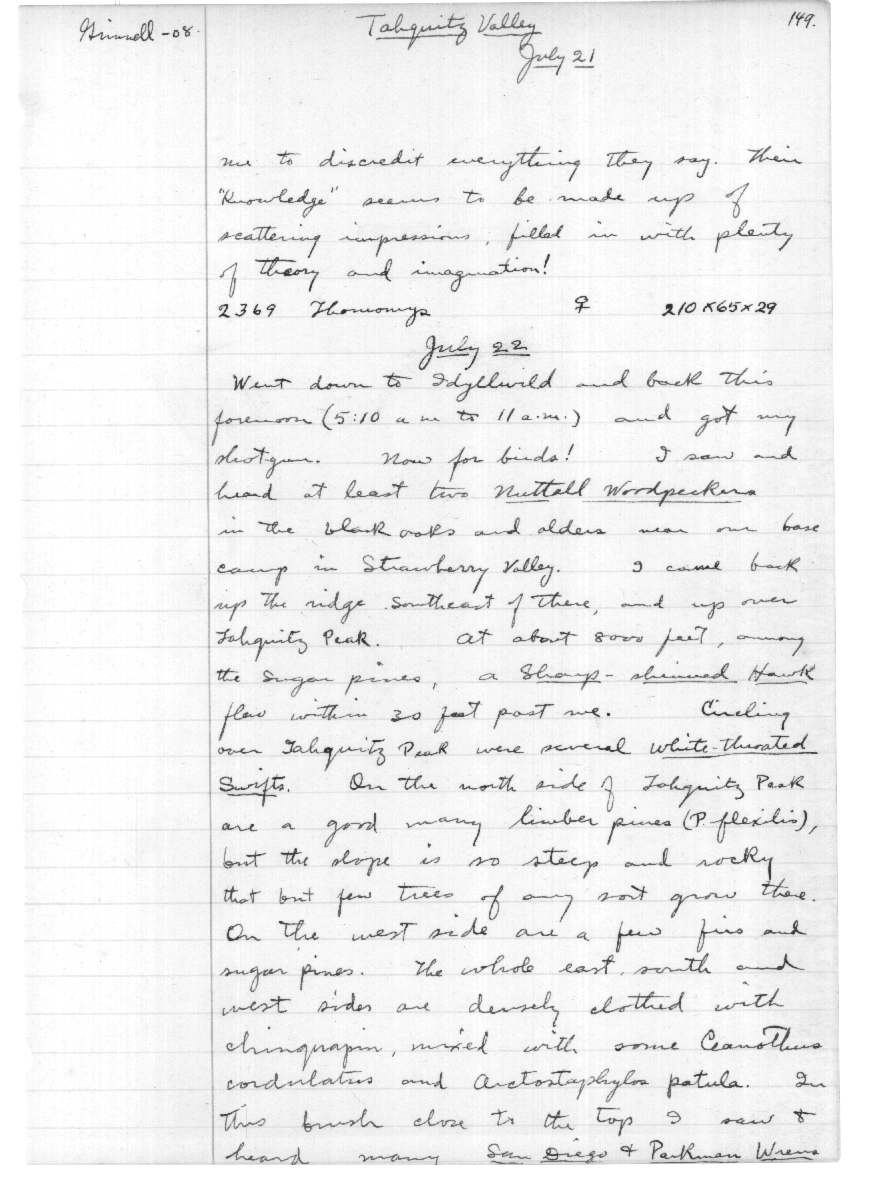 Grinnell - 08.
Tahquitz Valley
149.
July 21
me to discredit everything they say. Their
"knowledge" seems to be made up of
scattering impressions, filled in with plenty
of theory and imagination!
2369 Thomomys ♀ 210 x 65 x 29
July 22
Went down to Idyllwild and back this
forenoon (5:10 a m to 11 a.m.) and got my
shotgun. Now for birds! I saw and
heard at least two Nuttall Woodpeckers
in the black oaks and alders near our base
camp in Strawberry Valley. I came back
up the ridge southeast of there, and up over
Tahquitz Peak. At about 8000 feet, among
the sugar pines, a Sharp-shinned Hawk
flew within 30 feet past me. Circling
over Tahquitz Peak were several White-throated
Swifts. On the north side of Tahquitz Peak
are a good many limber pines (P. flexilis),
but the slope is so steep and rocky
that but few trees of any sort grow there.
On the west side are a few firs and
sugar pines. The whole east, south and
west sides are densely clothed with
chinquapin, mixed with some Ceanothus
cordulatus and Arctostaphylos patula. In
this brush close to the top I saw &
heard many San Diego & Parkman Wrens